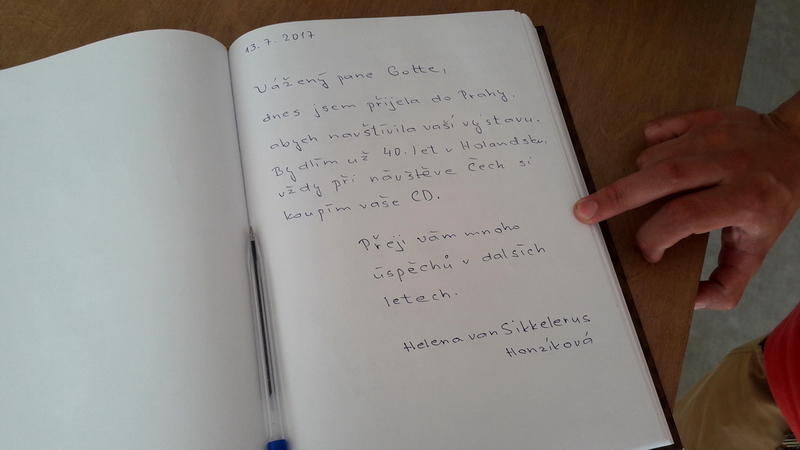 13.7.2017
Vážený pane Gotte,
dnes jsem přijela do Prahy,
abych navštívila vaší výstavu.
Bydlím už 40. let v Holandsku,
vždy při návštěvě Čech si
koupím vaše CD.
Přeji vám mnoho
úspěchů v dalsích
letech.
Helena van Sikkelerus
Honzíková